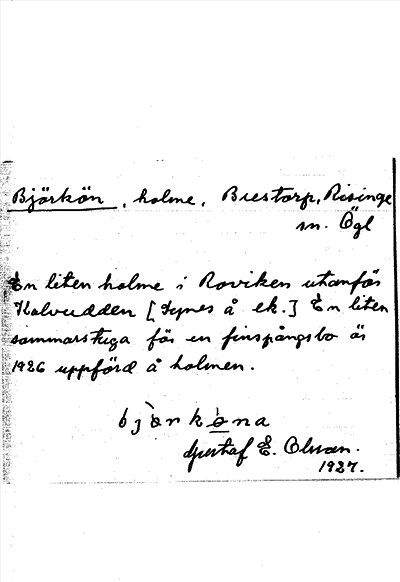 Björkön, holme, Brestorp, Risinge
sn. Ögl
En liten holme i Roviken utanför
Kalvudden [synes å ek.] En liten
sommarstuga för en finspångsbo är
1926 uppförd å holmen.
björköna
Gustaf E. Olsson.
1927.